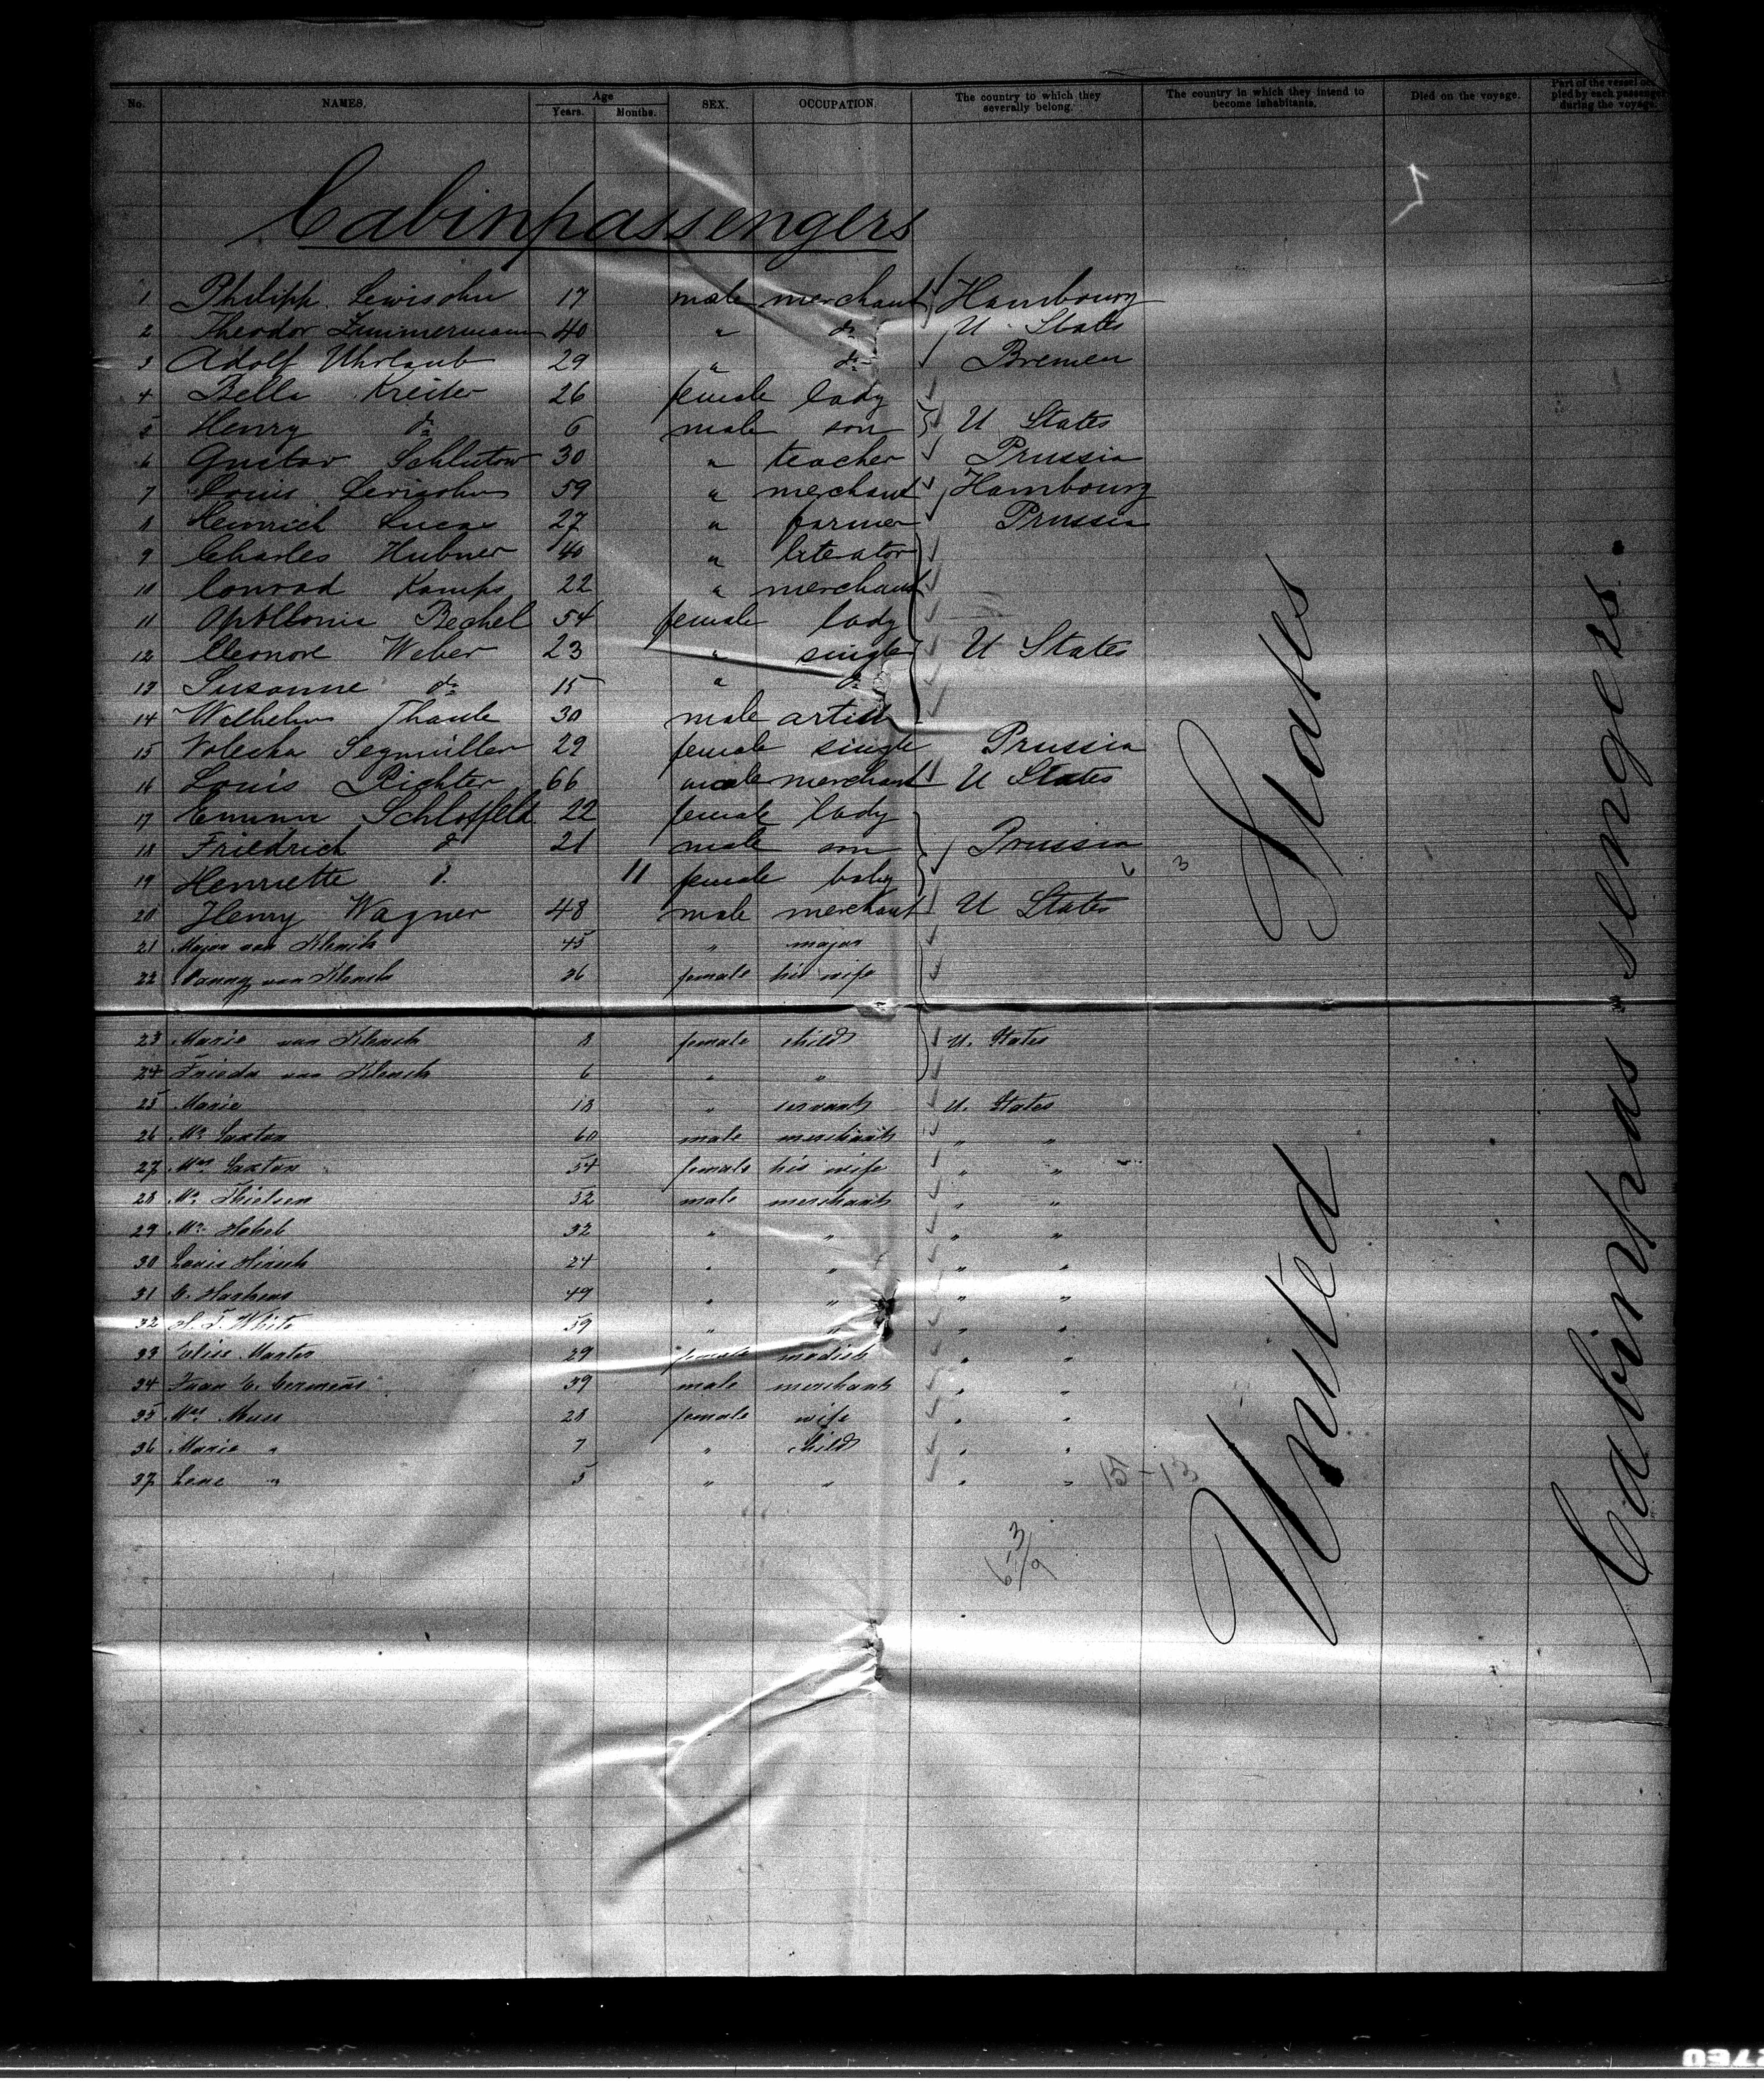 No. NAMES. Age Years. Months. SEX. OCCUPATION. The country to which they severally belong. The country in which they intend to become inhabitants. Died on the voyage. Part of the vessel occupied by each passenger during the voyage.
Cabinpassengers
1 Philipp Lewisohn 17 male merchant Hambourg
2 Theodor Zimmermann 40 " do U. States
3 Adolf Uhrlaub 29 " do Bremen
4 Bella Kreiter 26 female lady
5 Henry do 6 male son U States
6 Gustav Schlutow 30 " teacher Prussia
7 Louis Levisohn 59 " merchant Hambourg
8 Heinrich Lucas 27 " farmer Prussia
9 Charles Hubner 40 " literator
10 Conrad Kamps 22 " merchant
11 Apollonia Bechel 54 female lady
12 Eleonore Weber 23 " single U States
13 Susanne do 15 " do
14 Wilhelm Thaule 30 male artist
15 Valeska Segmüller 29 female single Prussia
16 Louis Richter 66 male merchant U States
17 Emma Schlossfeld 22 female lady
18 Friedrich do 21 male son Prussia
19 Henriette d. 11 female baby
20 Henry Wagner 48 male merchant U States
21 Major van 45 " major
22 van 36 female his wife
23 Marie van 8 female child U. States
24 Frieda van 6 " "
25 Marie 18 " servant U. States
26 Mr Saxton 60 male merchant " "
27 Mrs Saxton 54 female his wife " "
28 Mr. Thielsen 52 male merchant " "
29 Mr. 32 " " " "
30 Louis Hirsch 24 " " " "
31 C. 49 " " " "
32 S. T. White 59 " " " "
33 Elise 29 female modist " "
34 Juan C. 39 male merchant " "
35 Mrs. Muss 28 female wife " "
36 Marie " 7 " child " "
37 Lene " 5 " " " "
15-13
United States
Cabinpassengers.